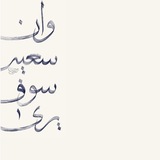 وان
سعيه
سوف
يرى